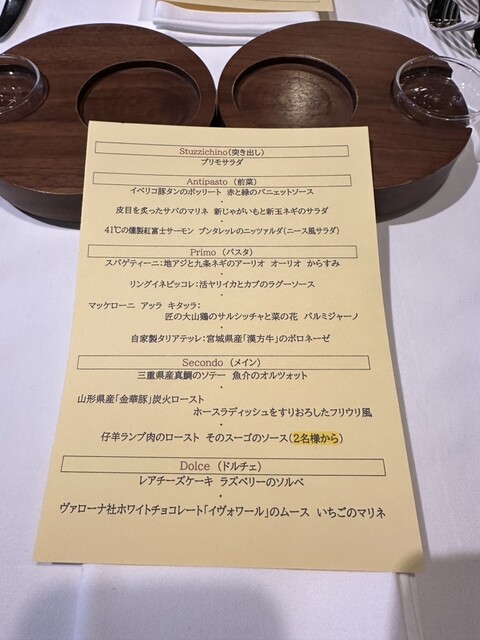 Stuzzichino(突き出し)
プリモサラダ
Antipasto (前菜)
イベリコ豚タンのボッリート 赤と緑のバニェットソース
・
皮目を炙ったサバのマリネ 新じゃがいもと新玉ネギのサラダ
・
41℃の燻製紅富士サーモン プンタレッレのニッツァルダ(ニース風サラダ)
Primo (パスタ)
スパゲティーニ:地アジと九条ネギのアーリオ オーリオ からすみ
・
リングイネピッコレ:活ヤリイカとカブのラグーソース
・
マッケローニ アッラ キタッラ:
匠の大山鶏のサルシッチャと菜の花 パルミジャーノ
・
自家製タリアテッレ:宮城県産「漢方牛」のボロネーゼ
Secondo (メイン)
三重県産真鯛のソテー 魚介のオルツォット
・
山形県産「金華豚」炭火ロースト
ホースラディッシュをすりおろしたフリウリ風
・
仔羊ランプ肉のロースト そのスーゴのソース(2名様から)
Dolce (ドルチェ)
レアチーズケーキ ラズベリーのソルベ
・
ヴァローナ社ホワイトチョコレート「イヴォワール」のムース いちごのマリネ